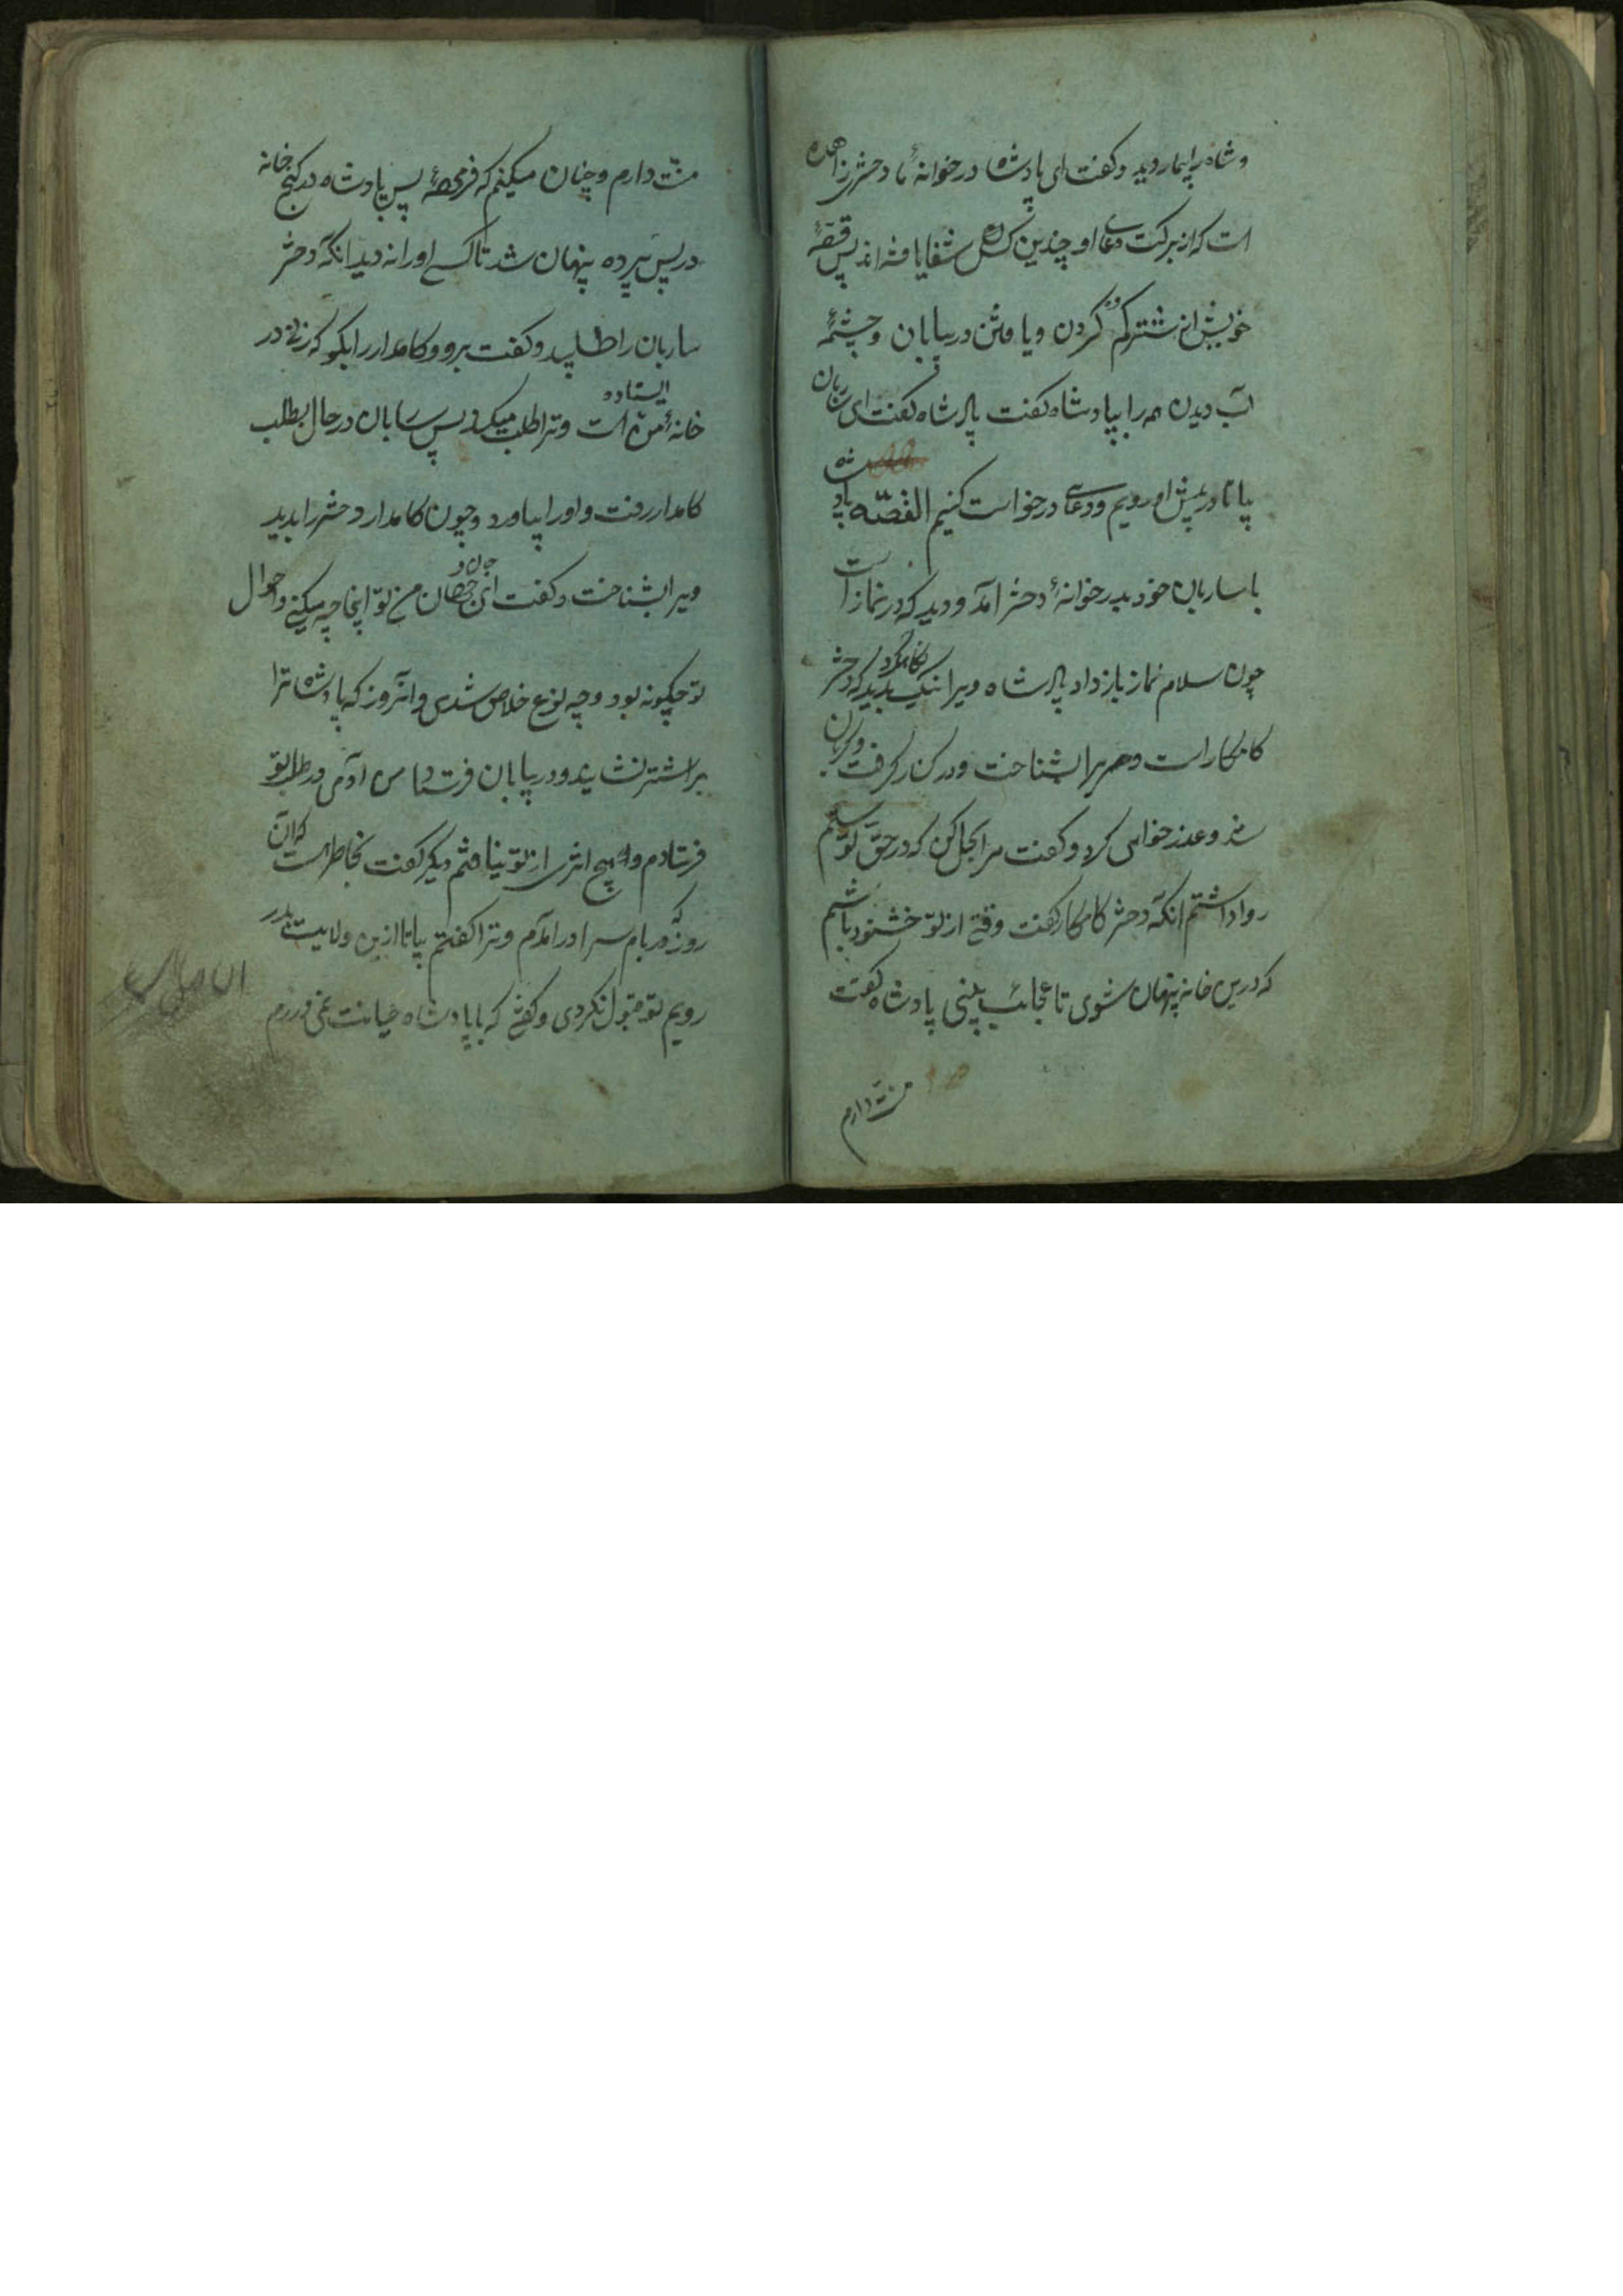 و شاه را بیمار دید و کفت ای پادشاه در خوانهٔ ما دختر زاهده
است که از برکت دعای او چندین کس شفا یافته اند پس قصهٔ
خویش از شتر کم کردن و یافتن در بیابان و چشمهٔ
آب دیدن همه را بپادشاه کفت پادشاه کفت ای ساربان
بیا تا در پیش او رویم و دعای درخواست کنیم القصّه پادشاه
با ساربان خود بدر خوانهٔ دختر آمد و دید که در نماز است
چون سلام نماز باز داد پادشاه ویرا نیک بدید که دختر
کامکار است ویرا بشناخت و در کنار کرفت و کریان
شد و عذر خواهی کرد و کفت مرا بحل کن که در حق تو ستم
روا داشتم انکه دختر کامکار کفت وقتی از تو خشنود باشم
که درین خانه پنهان شوی تا عجایب بینی پادشاه کفت
منت دارم
منّت دارم و چنان میکنم که فرمودهٔ پس پادشاه در کنج خانه
در پس پرده پنهان شد تا کسی او را نه دید انکه دختر
ساربان را طلبید و کفت برو و کامدار را بکو که زنی در
خانهٔ من ایستاده است و ترا طلب میکند پس ساربان در حال بطلب
کامدار رفت و او را بیاورد و چون کامدار دختر را بدید
ویرا بشناخت و کفت ای جان و جهان من تو اینجا چه میکنی و احوال
تو چکونه بود و چه نوع خلاص شدی و آنروز که پادشاه ترا
بر اشتر نشانید و در بیابان فرستاد من آدمی در طلب تو
فرستادم و هیچ اثری از تو نیافتم دیکر کفت بخاطر است که آن
روز که در بام سرا درآمدم و ترا کفتم بیا تا ازین ولایت بدر
رویم تو قبول نکردی و کفتی که با پادشاه خیانت نمی ورزم